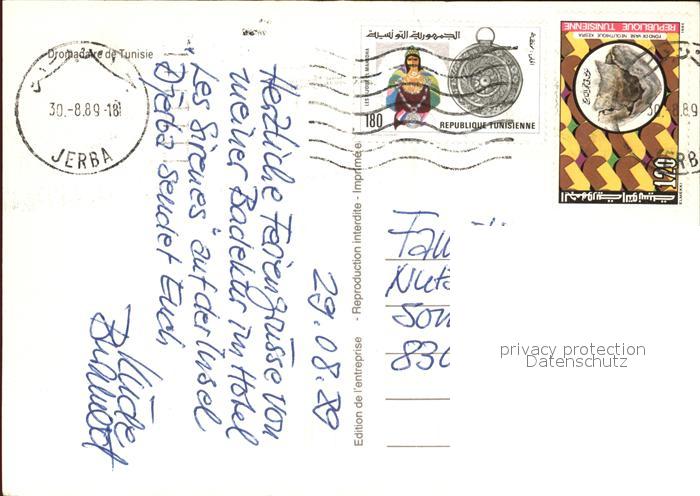 Dromadaire de Tunisie
30.-8.89-18
JERBA
الجمهورية التونسية
180
REPUBLIQUE TUNISIENNE
REPUBLIQUE TUNISIENNE
120
29.08.89
Herzliche Feriengrüsse von
meiner Badekur im Hotel
"Les Sirenes" auf der Insel
Djerba sendet Euch
Edition de l'entreprise - Reproduction interdite - Imprimé
Fam
Nutz
Son
830
privacy protection
Datenschutz